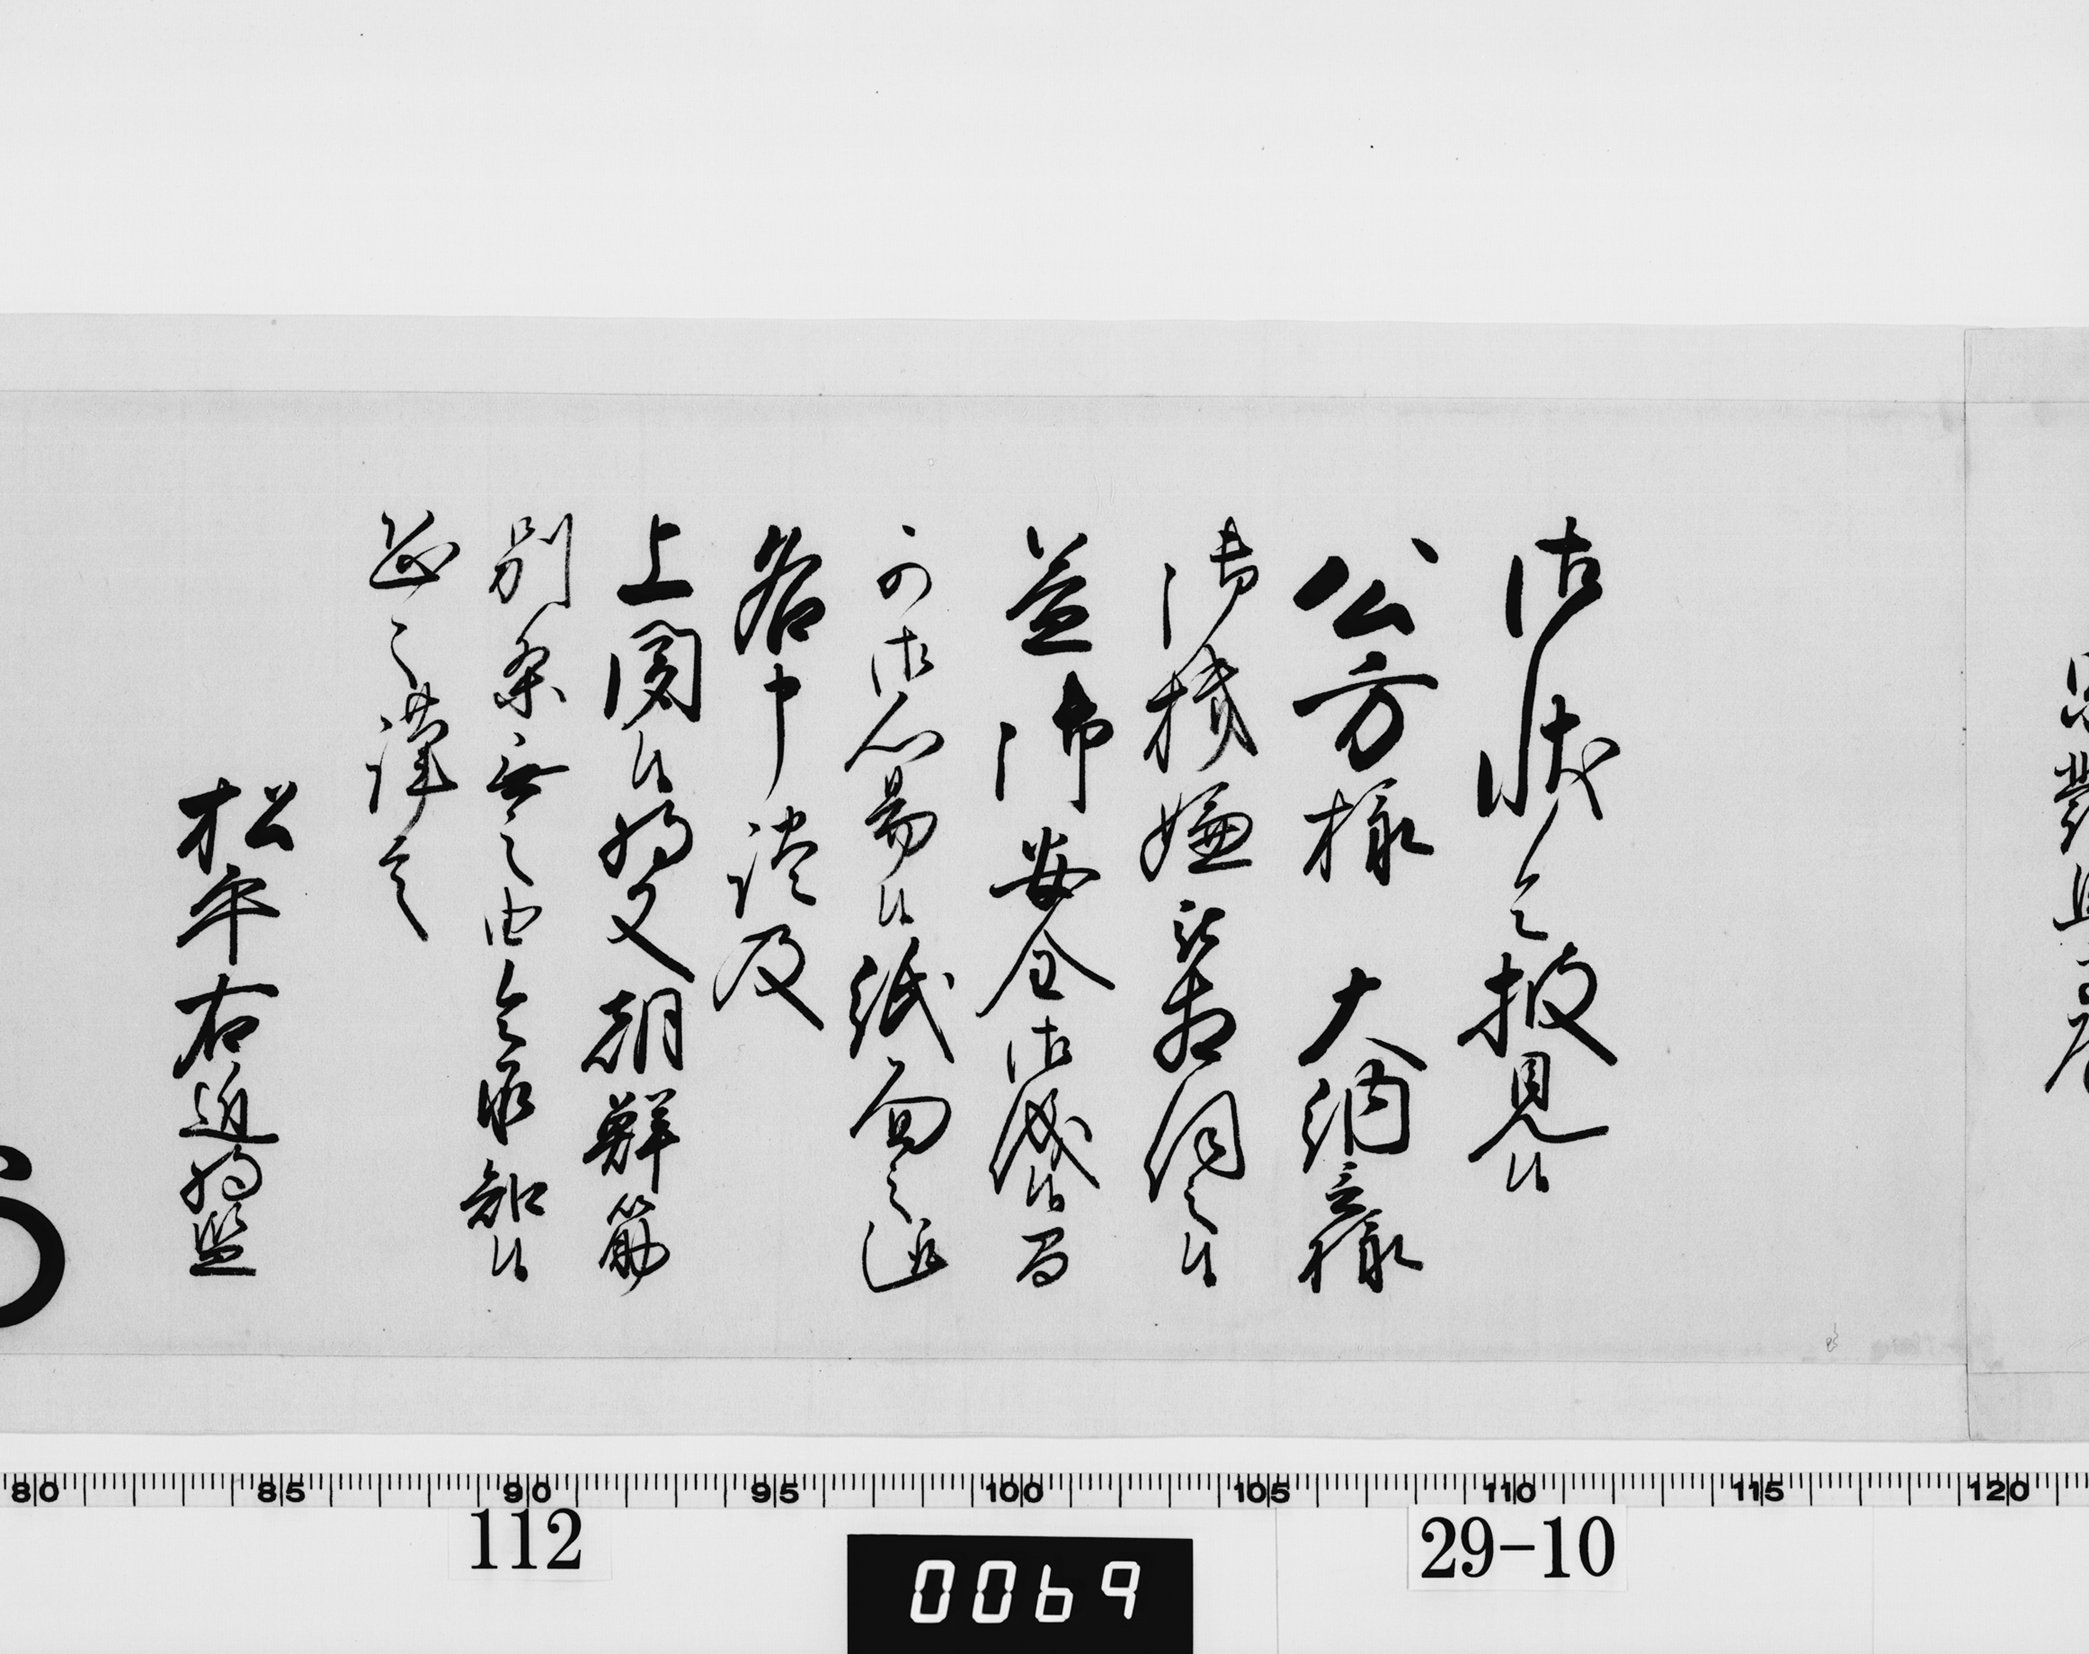 御状令披見候
公方様 大納言様
御機嫌被相伺之候
益御安全御儀候間
可御心易候紙面之趣
各申談及
上聞候将又朝鮮筋
別条無之由令承知候
恐々謹言
松平右近将監
80 85 90 95 100 105 110 115 120
112
0069
29-10